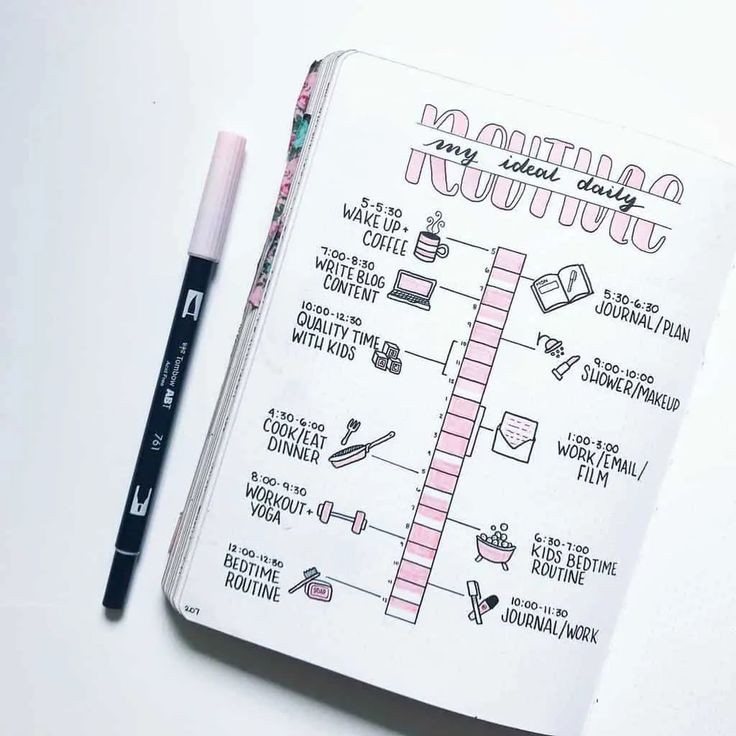 ROUTINE
my ideal daily
5-5:30
WAKE UP +
COFFEE
5:30-6:30
JOURNAL/PLAN
7:00-8:30
WRITE BLOG
CONTENT
9:00-10:00
SHOWER/MAKEUP
10:00-12:30
QUALITY TIME
WITH KIDS
1:00-3:00
WORK/EMAIL/
FILM
4:30-6:00
COOK/EAT
DINNER
6:30-7:00
KIDS BEDTIME
ROUTINE
8:00-9:30
WORKOUT +
YOGA
10:00-11:30
JOURNAL/WORK
12:00-12:30
BEDTIME
ROUTINE
SOAP
5
6
7
8
9
10
11
12
1
2
3
4
5
6
7
8
9
10
11
12
207
Tombow ABT
761